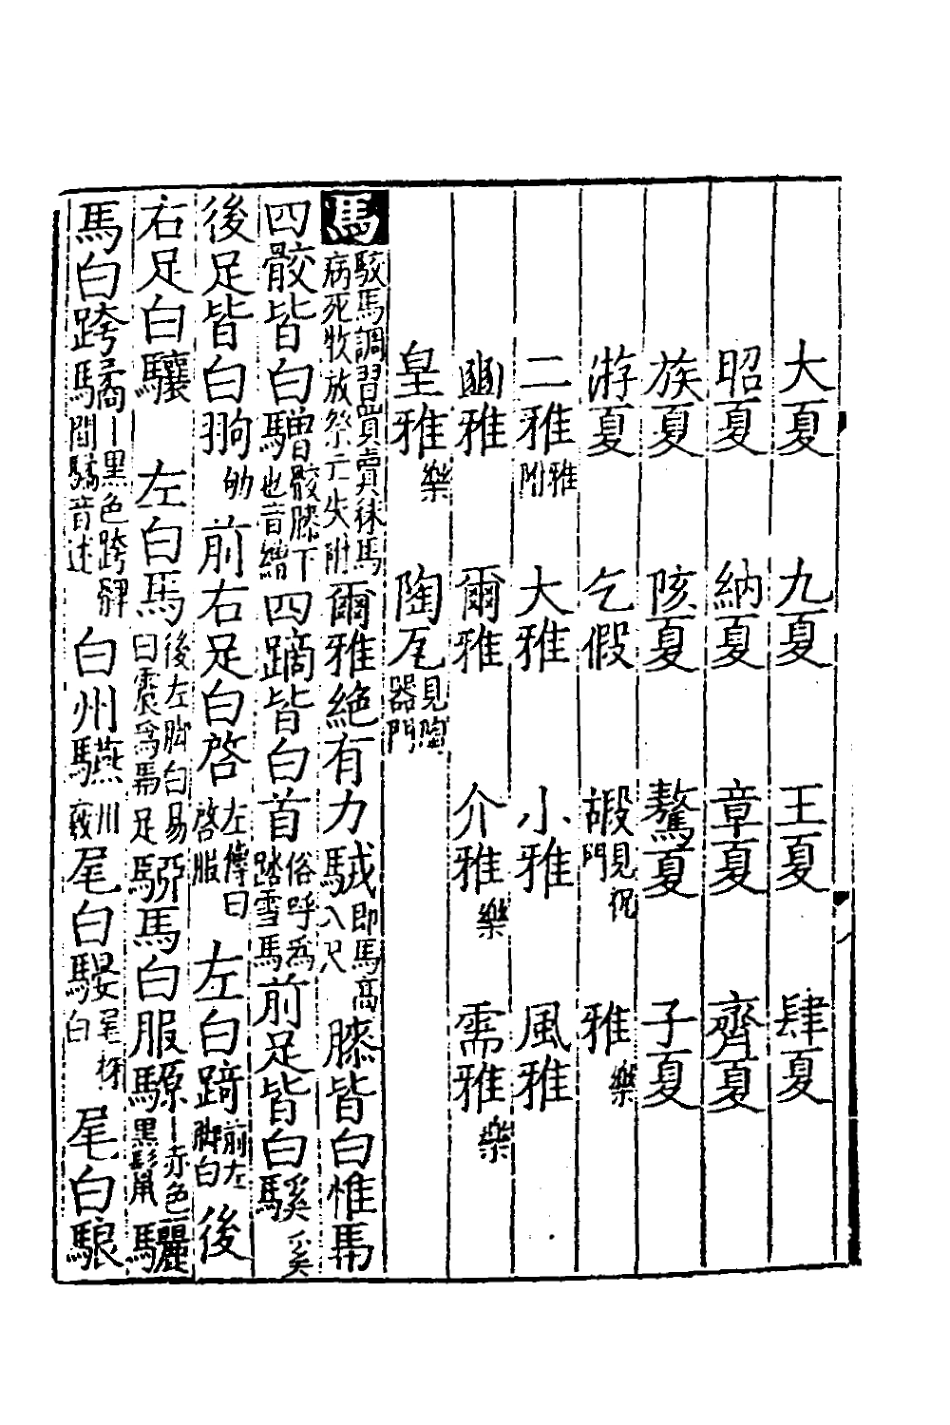 大夏 九夏 王夏 肆夏
昭夏 納夏 章夏 齊夏
族夏 陔夏 驁夏 子夏
游夏 乞假 嘏見祝門 雅樂
二雅雅附 大雅 小雅 風雅
豳雅 爾雅 介雅樂 需雅樂
皇雅樂 陶瓦見陶器門
馬駁馬調習買賣秣馬病死牧放祭亡失附爾雅絶有力駥即馬高八尺膝皆白惟馵
四骹皆白驓骹膝下也音繒四蹢皆白首俗呼爲踏雪馬前足皆白騱奚
後足皆白翑劬前右足白啓左傳曰啓服左白踦前左脚白後
右足白驤 左白馵後左脚白易曰震爲馵足駵馬白腹騵丨赤色黑鬣驪
馬白跨驈丨黑色跨髀間驈音述白州驠州竅尾白騴尾株白尾白駺